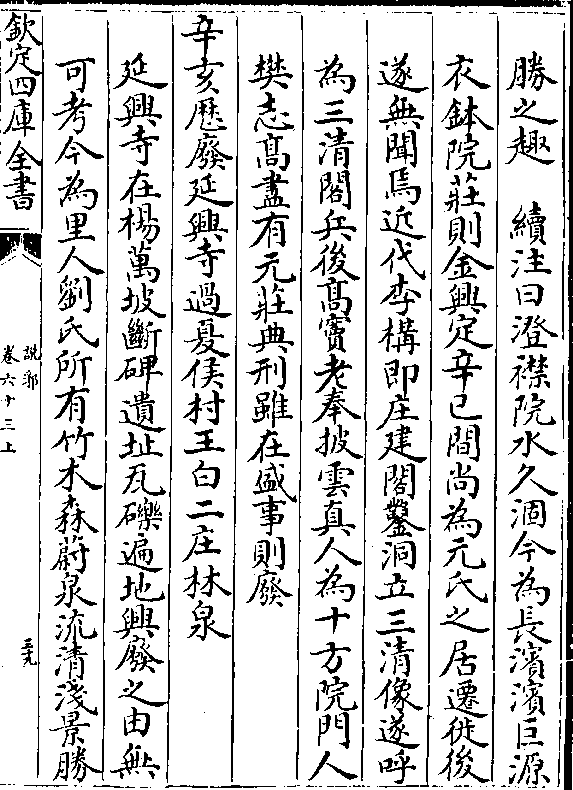 勝之趣　續注曰澄襟院水久涸今為長濱濱巨源
衣鉢院莊則金興定辛巳間尚為元氏之居遷徙後
遂無聞焉近代李構即庄建閣鑿洞立三清像遂呼
為三清閣兵後高寶老奉披雲真人為十方院門人
樊志高盡有元莊典刑雖在盛事則廢
辛亥歴廢延興寺過夏侯村王白二庄林泉
延興寺在楊萬坡斷碑遺址瓦礫遍地興廢之由無
可考今為里人劉氏所有竹木森蔚泉流清淺景勝
欽定四庫全書
説郛
卷六十三上
三九